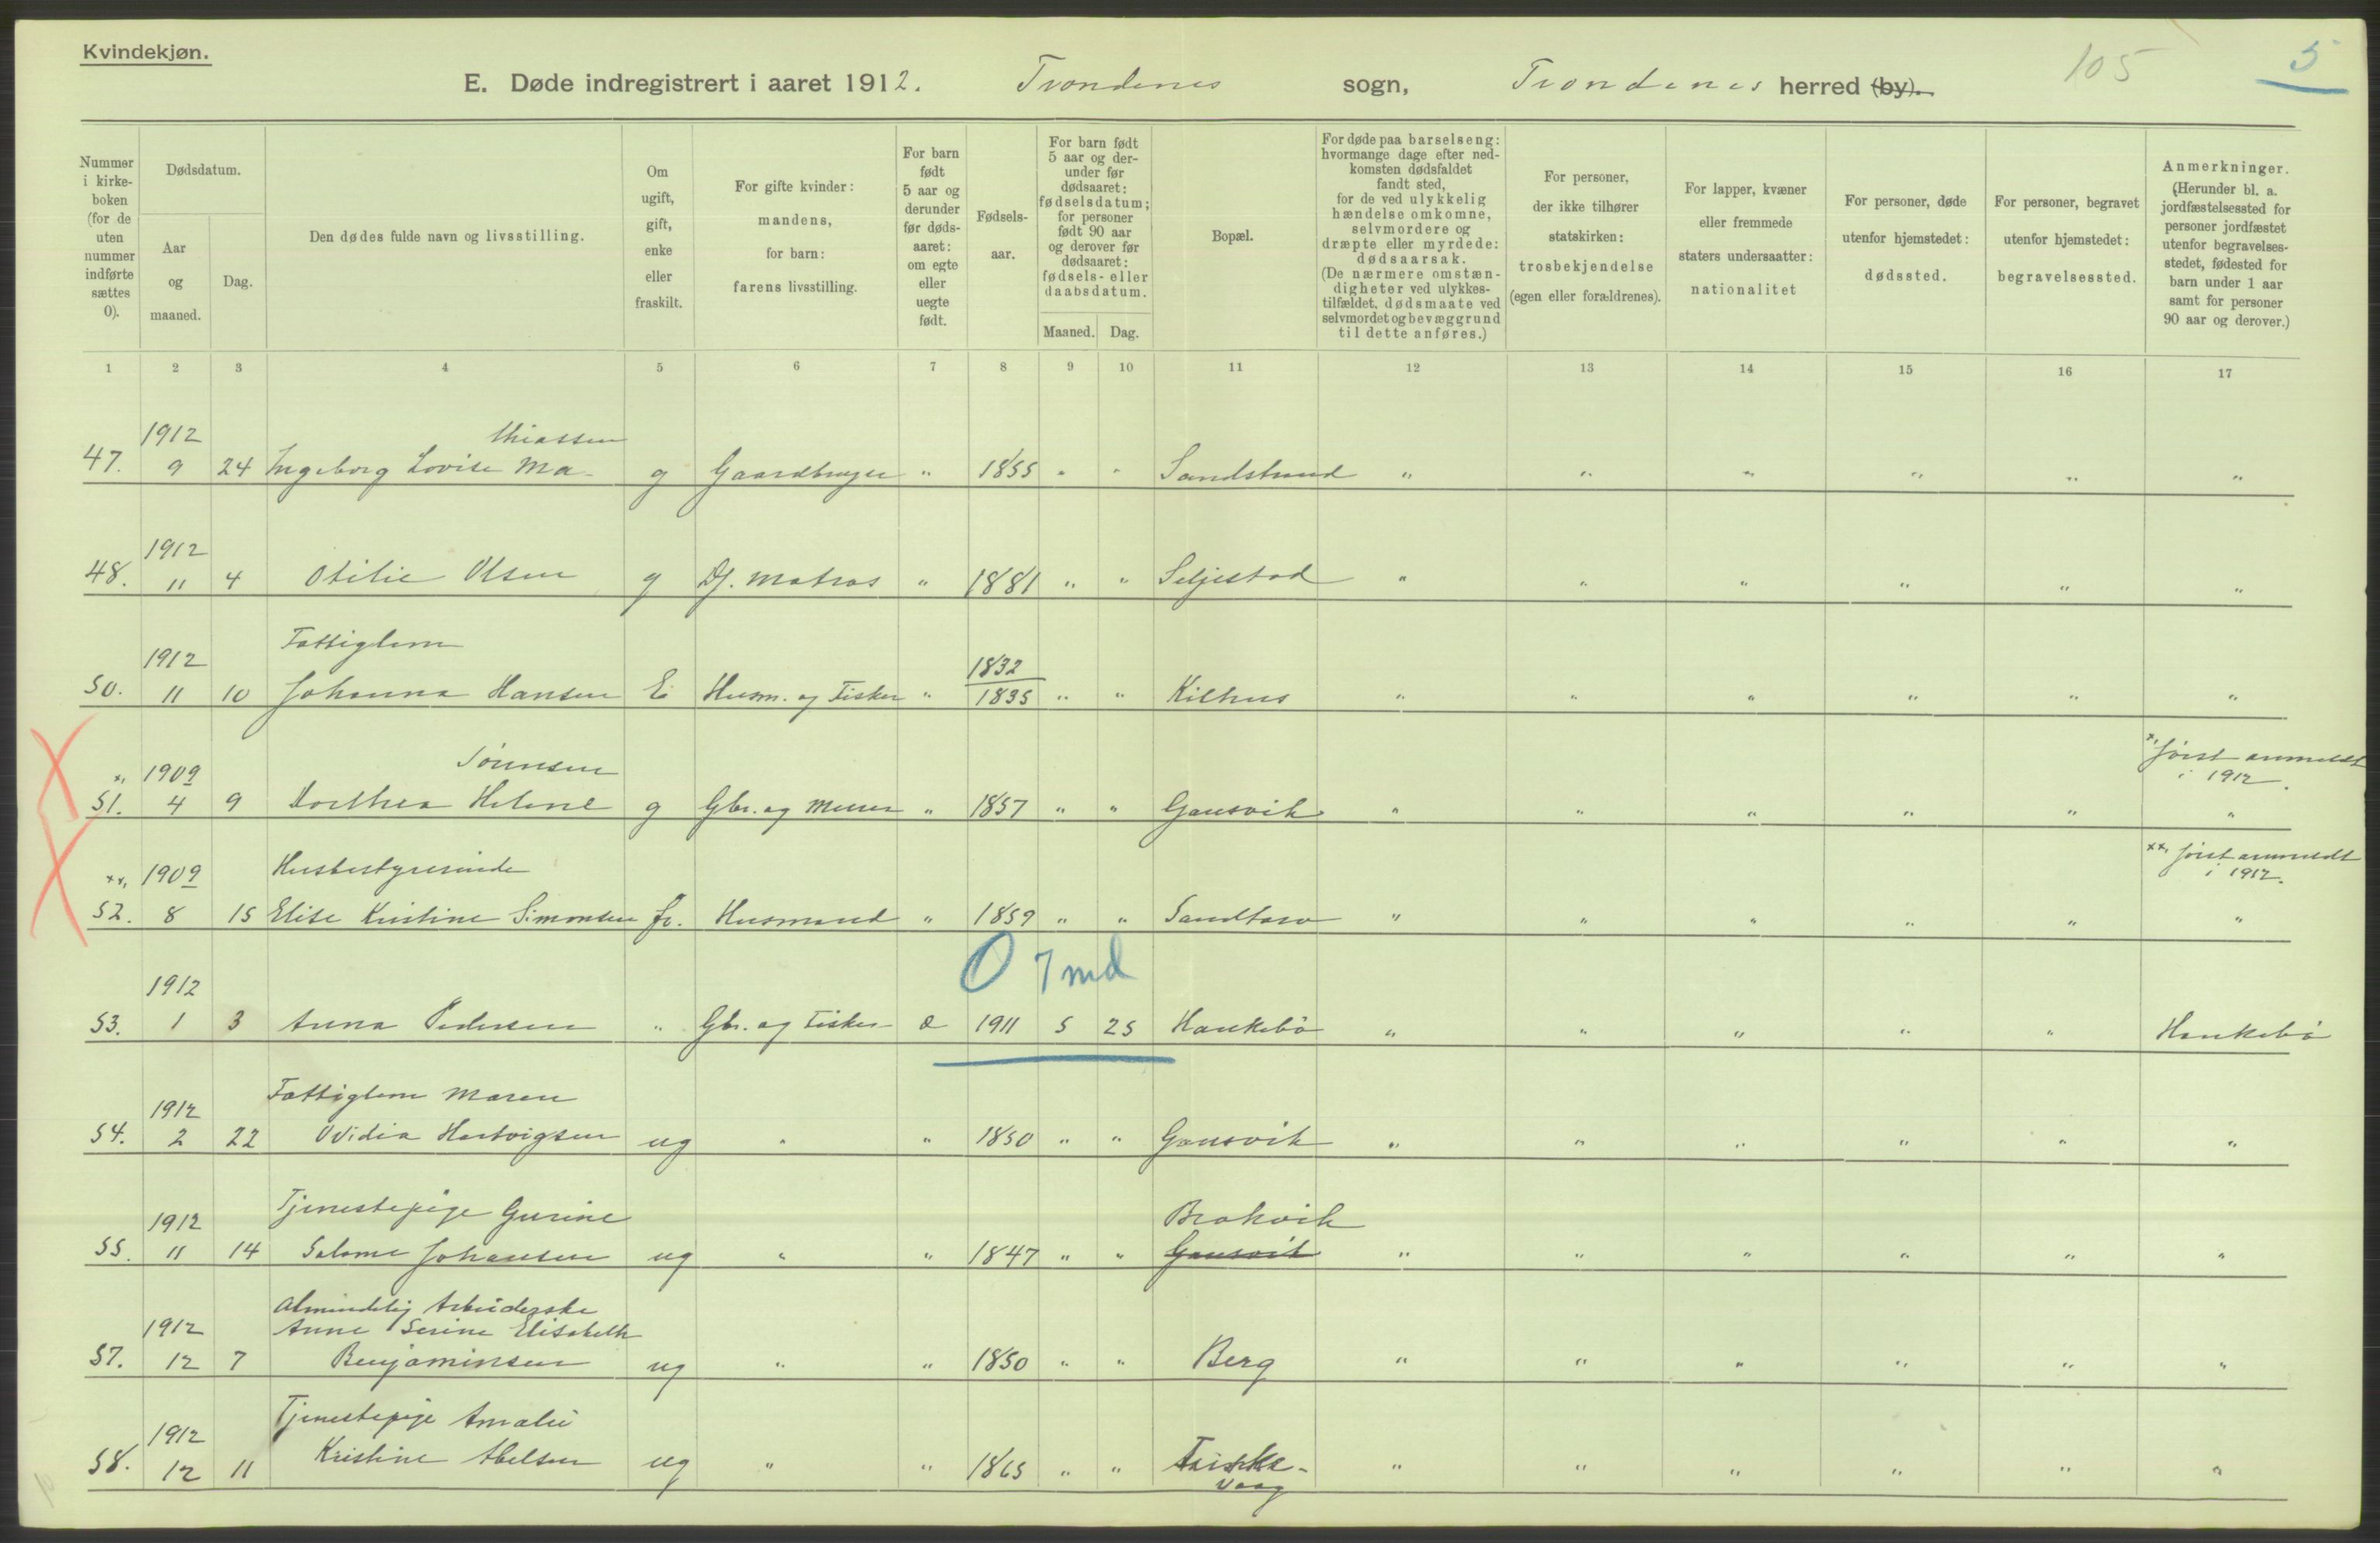 Kvindekjøn.
E. Døde indregistrert i aaret 1912. Trondenes sogn, Trondenes herred (by).
105
5
Nummer i kirke-boken (for de uten nummer indførte sættes 0).
Dødsdatum.
Aar og maaned.
Dag.
Den dødes fulde navn og livsstilling.
Om ugift, gift, enke eller fraskilt.
For gifte kvinder: mandens, for barn: farens livsstilling.
For barn født 5 aar og derunder før døds-aaret: om egte eller uegte født.
Fødsels-aar.
For barn født 5 aar og der-under før dødsaaret: fødselsdatum; for personer født 90 aar og derover før dødsaaret: fødsels- eller daabsdatum.
Maaned. Dag.
Bopæl.
For døde paa barselseng: hvormange dage efter ned-komsten dødsfaldet fandt sted, for de ved ulykkelig hændelse omkomne, selvmordere og dræpte eller myrdede: dødsaarsak. (De nærmere omstæn-digheter ved ulykkes-tilfældet, dødsmaate ved selvmordet og bevæggrund til dette anføres.)
For personer, der ikke tilhører statskirken: trosbekjendelse (egen eller forældrenes).
For lapper, kvæner eller fremmede staters undersaatter: nationalitet
For personer, døde utenfor hjemstedet: dødssted.
For personer, begravet utenfor hjemstedet: begravelsessted.
Anmerkninger. (Herunder bl. a. jordfæstelsessted for personer jordfæstet utenfor begravelses-stedet, fødested for barn under 1 aar samt for personer 90 aar og derover.)
1 2 3 4 5 6 7 8 9 10 11 12 13 14 15 16 17
1912 thiassen
47. 9 24 Ingeborg Lovise Ma- g Gaardbruger " 1855 " " Sandstrand " " " " " "
1912
48. 11 4 Otilie Olsen g Df. matros " 1881 " " Seljestad " " " " " "
1912 Fattiglem 1832
50. 11 10 Johanna Hansen E Husm. og Fisker " 1835 " " Kilhus " " " " " "
x, 1909 Sørensen x, først anmeldt i 1912.
51. 4 9 Dorthea Helene g Gbr. og " 1857 " " Gausvik " " " " " "
xx, 1909 Husbestyrerinde xx, først anmeldt i 1912.
52. 8 15 Elise Kristine Simonsen fr. Husmand " 1859 " " Sandtorv " " " " " "
0 7 md
1912
53. 1 3 Anna Pedersen " Gbr. og Fisker 1911 5 25 Haukebø " " " " " Haukebø
1912 Fattiglem Maren
54. 2 22 Ovidia Hartvigsen ug " " 1850 " " Gausvik " " " " " "
1912 Tjenestepige Gurine Brokvik
55. 11 14 Salome Johansen ug " " 1847 " " Gausvik " " " " " "
Almindelig Arbeiderske
1912 Anne Serine Elisabeth
57. 12 7 Benjaminsen ug " " 1850 " " Berg " " " " " "
1912 Tjenestepige Amalie
58. 12 11 Kristine Abelsen ug " " 1865 " " " " " " " "
vaag